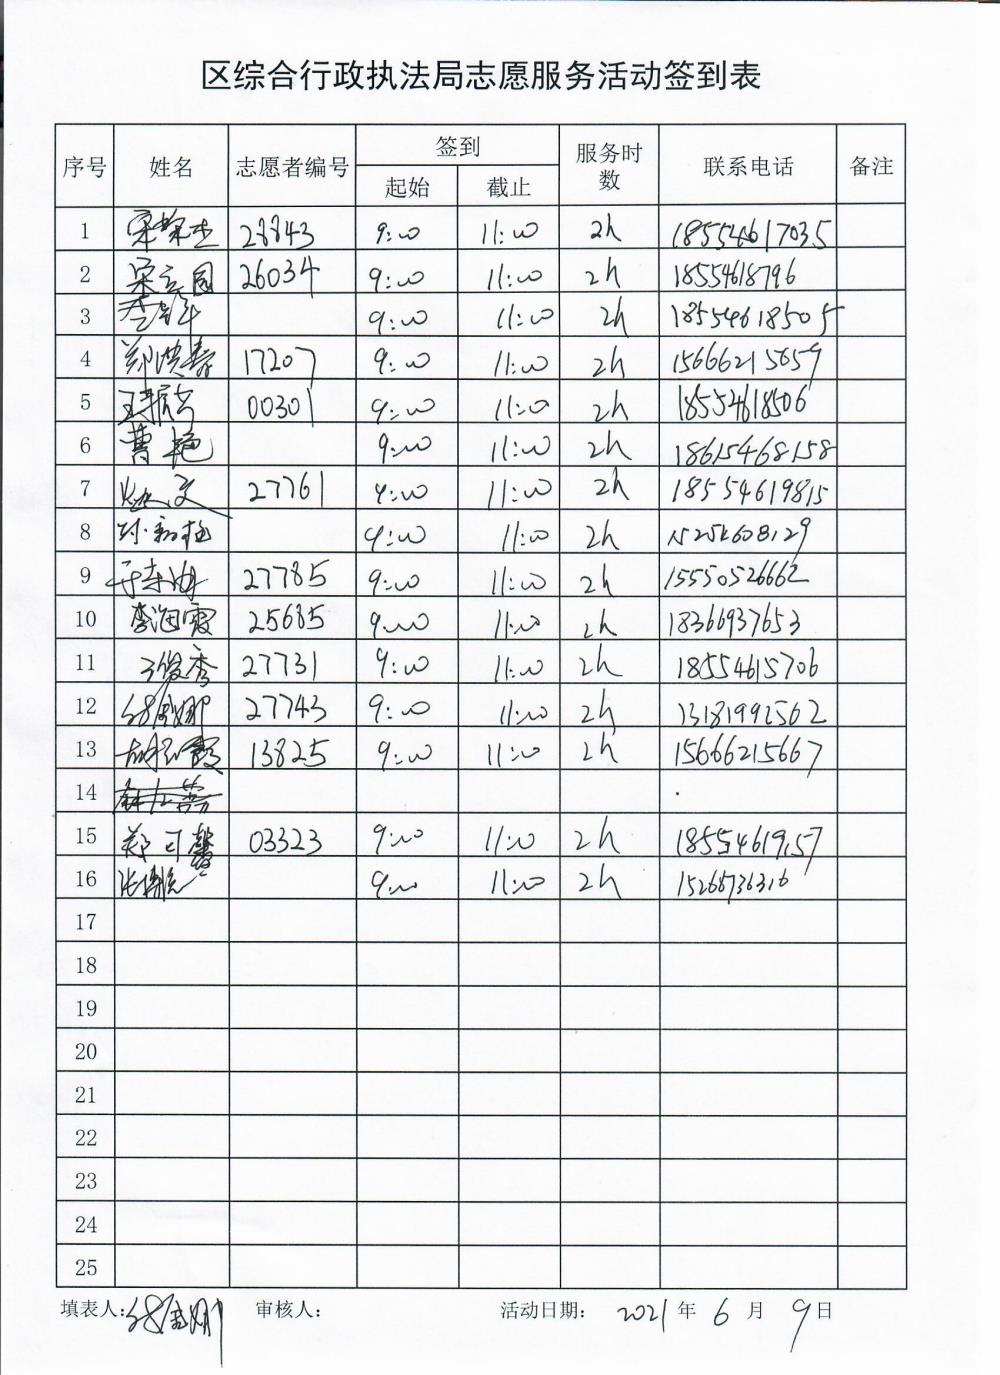 区综合行政执法局志愿服务活动签到表
序号 姓名 志愿者编号 签到 服务时数 联系电话 备注
起始 截止
1 28843 9:00 11:00 2h 18554617035
2 宋立国 26034 9:00 11:00 2h 18554618796
3 9:00 11:00 2h 18554618505
4 郑洪春 17207 9:00 11:00 2h 15666215659
5 00301 9:00 11:00 2h 18554618506
6 曹艳 9:00 11:00 2h 18615468158
7 27761 9:00 11:00 2h 18554619815
8 9:00 11:00 2h
9 27785 9:00 11:00 2h 15550526662
10 李海霞 25685 9:00 11:00 2h 18366937653
11 27731 9:00 11:00 2h 18554615706
12 27743 9:00 11:00 2h 13181992562
13 13825 9:00 11:00 2h 15666215667
14
15 郑可馨 03323 9:00 11:00 2h
16 9:00 11:00 2h
17
18
19
20
21
22
23
24
25
填表人: 审核人: 活动日期: 2021 年 6 月 9 日